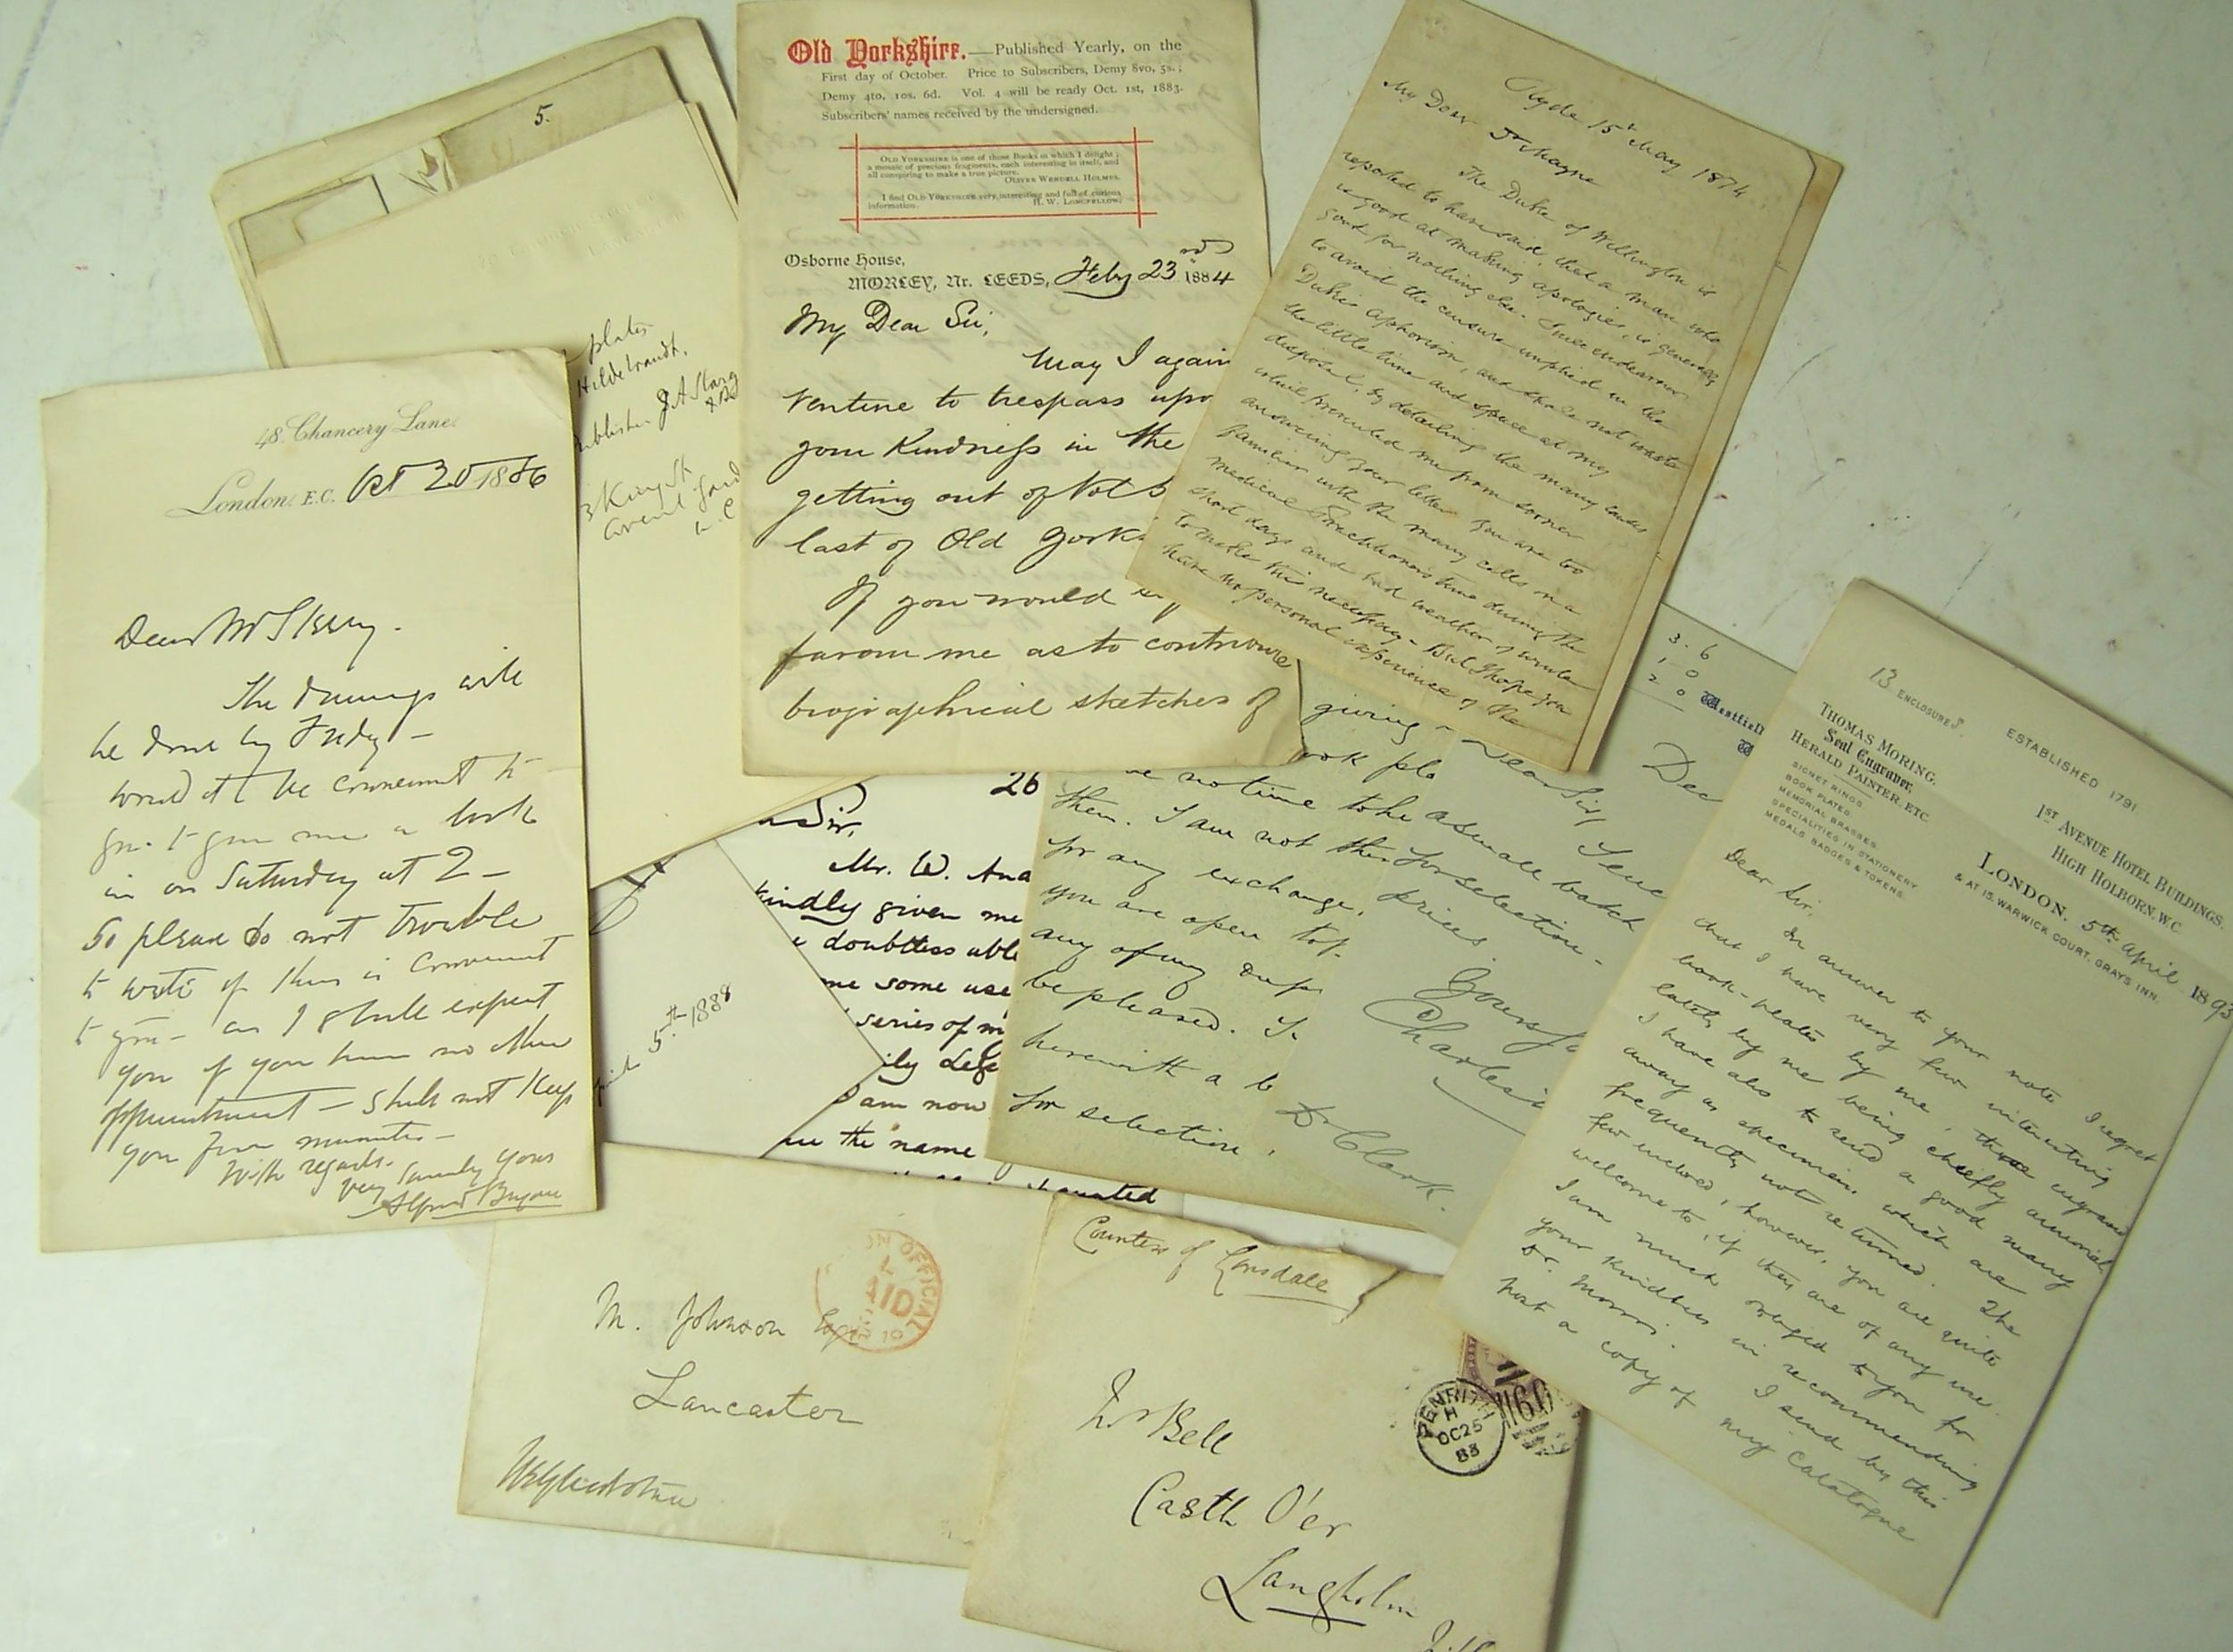 5.
plates
Hildebrandt.
3 King St
48. Chancery Lane.
London. E.C. Oct 20 1886
Dear Mr
The drawings will
be done by Friday —
would it be convenient to
you to give me a look
in on Saturday at 2 —
So please do not trouble
to write if this is convenient
to you — as I shall expect
you if you have no other
appointment — shall not keep
you few minutes —
With regards.
very sincerely yours
Alfred Bryan
Old Yorkshire.—Published Yearly, on the
First day of October. Price to Subscribers, Demy 8vo, 5s.;
Demy 4to, 10s. 6d. Vol. 4 will be ready Oct. 1st, 1883.
Subscribers' names received by the undersigned.
OLD YORKSHIRE is one of those Books in which I delight;
a mosaic of precious fragments, each interesting in itself, and
all conspiring to make a true picture.
OLIVER WENDELL HOLMES.
I find OLD YORKSHIRE very interesting and full of curious
information. H. W. LONGFELLOW.
Osborne House,
MORLEY, Nr. LEEDS, Feby 23rd 1884
My Dear Sir,
May I again
venture to trespass upo
your Kindness in the
getting out of Vol 5
last of Old Yorks
If you would
favour me as to contribute
biographical sketches of
Ryde 15th May 1874
My Dear
The Duke of Wellington is
reported to have said, that a man who
is good at making apologies, is generally
good for nothing else. I will endeavour
to avoid the censure implied in the
Duke's aphorism, and shall not waste
the little time and space at my
disposal, by detailing the many causes
which prevented me from sooner
answering your letter. You are too
familiar with the many calls on a
medical practitioners time during the
short days and bad weather of winter
to make this necessary — But I hope you
have no personal experience of the
26
Sir,
Mr. W. And
kindly given me
doubtless able
me some use
series of m
ily Leg
am now
the name
5th 1888
giving
ook pla
no time to
them. I am not
for any exchange.
you are open to
any of my dup
be pleased. I
herewith a b
for selection.
Dear Sir,
Send
he a small batch
for selection.
Prices
Yours
Charles
Dr Clark.
3. 6
1 0
2 0
Westfiel
Dec
13 ENCLOSURES.
THOMAS MORING.
Seal Engraver,
HERALD PAINTER, ETC.
SIGNET RINGS.
BOOK PLATES.
MEMORIAL BRASSES.
SPECIALITIES IN STATIONERY
MEDALS
BADGES & TOKENS.
ESTABLISHED 1791
1ST AVENUE HOTEL BUILDINGS,
HIGH HOLBORN, W.C.
LONDON. 5th April 1893
& AT 15, WARWICK COURT, GRAYS INN.
Dear Sir,
In answer to your note I regret
that I have very few interesting
book-plates by me, those engraved
lately by me being chiefly armorial.
I have also to send a good many
away as specimens which are
frequently not returned. The
few enclosed, however, you are quite
welcome to, if they are of any use.
I am much obliged to you for
your kindness in recommending
Dr. Morris. I send by this
post a copy of my Catalogue
ON OFFICIAL
PAID
M. Johnson Esq
Lancaster
WEGladstone
Countess of Lonsdale
PENRITH
H
OC 25
83
Mr Bell
Castle O'er
Langholm